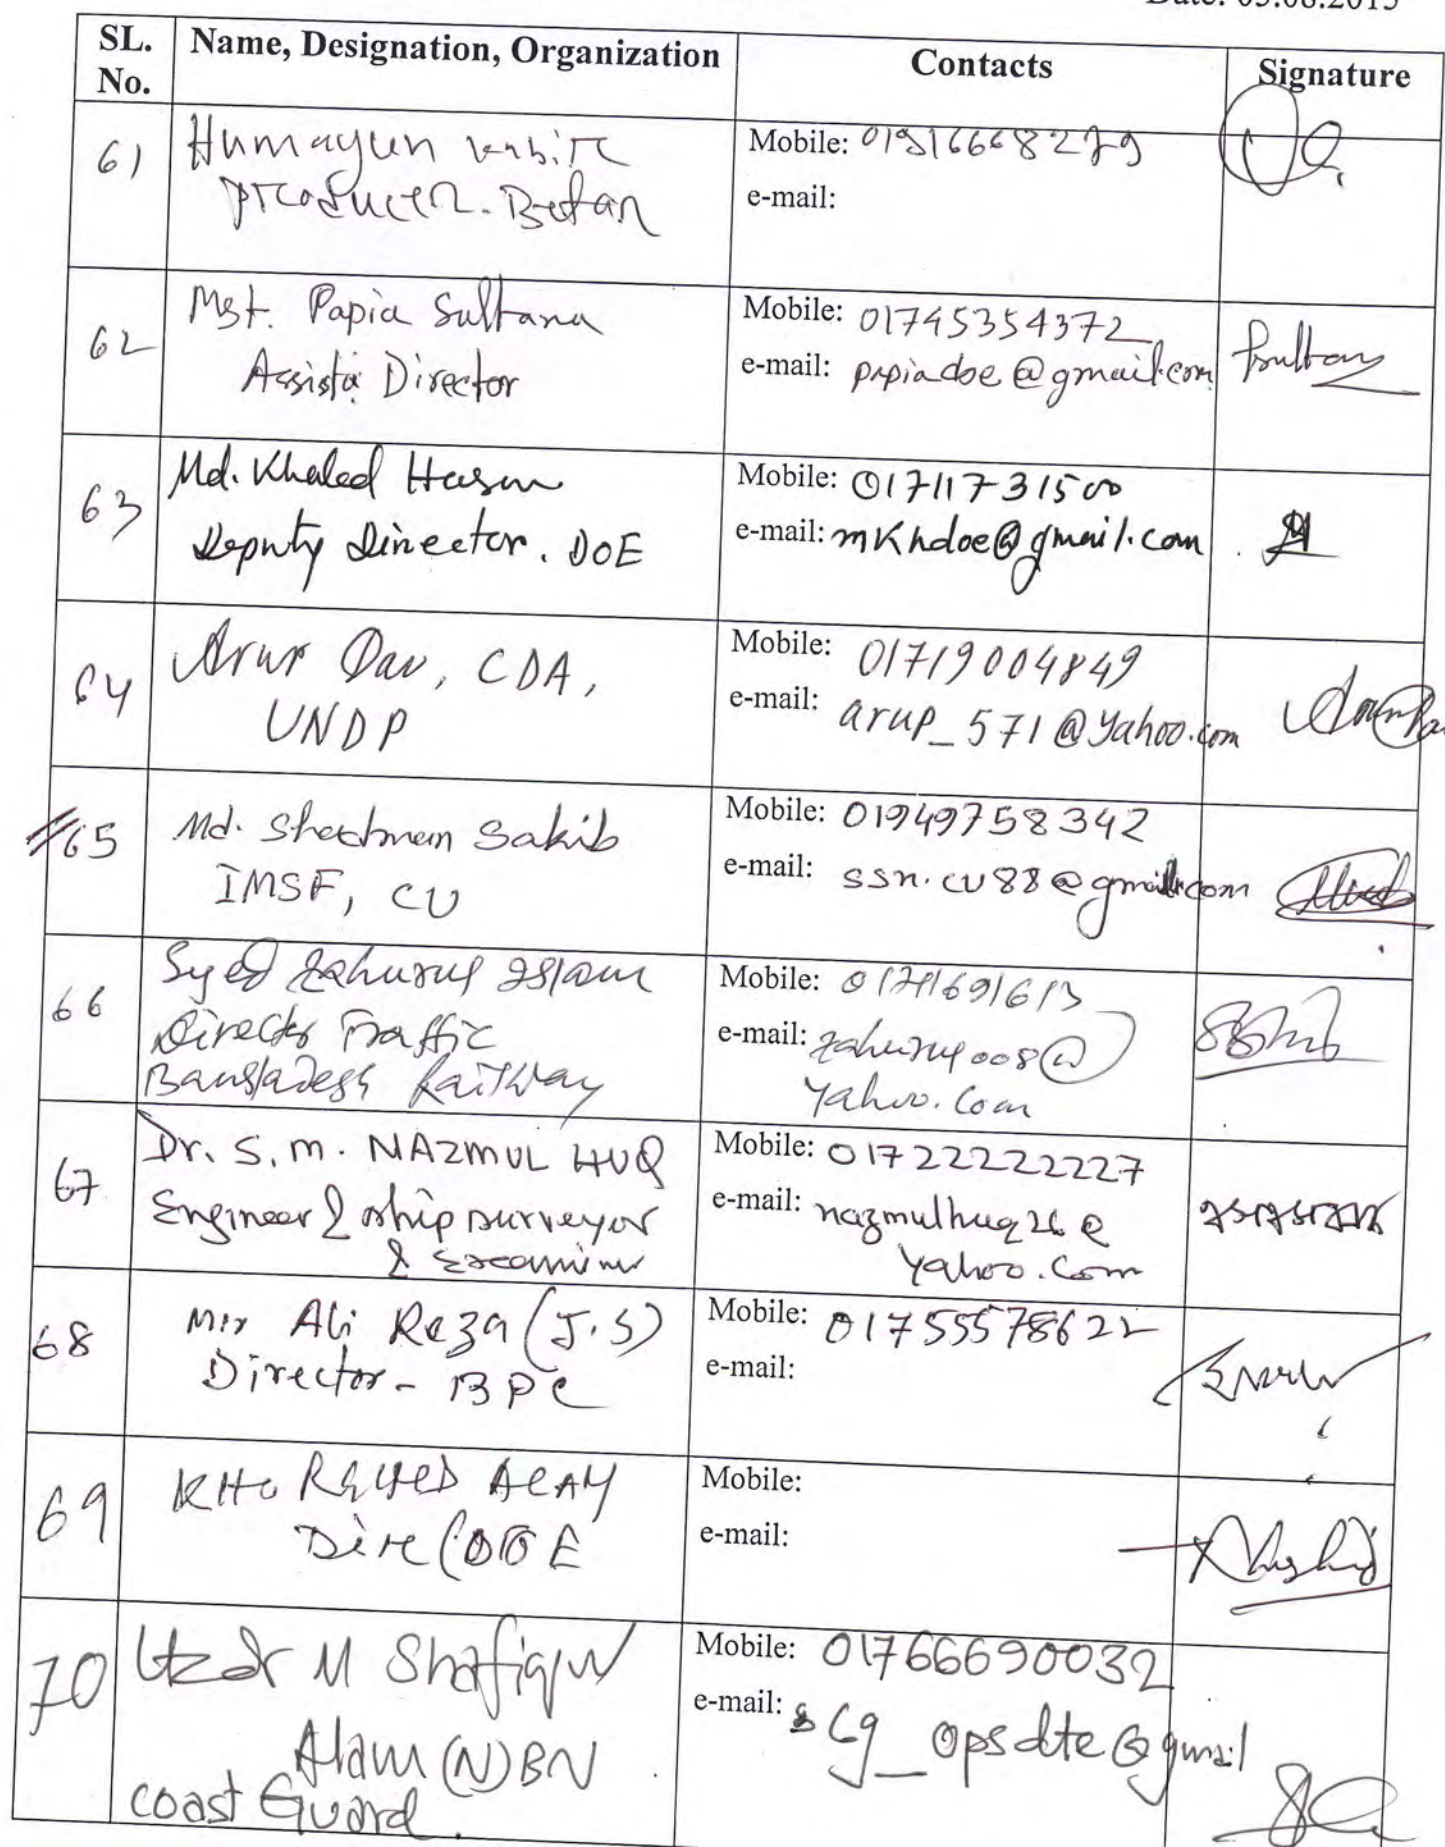 Date: 05.08.2015
SL. No.
Name, Designation, Organization
Contacts
Signature
61
Humayun Kabir
producer. Betar
Mobile:
e-mail:
62
Mst. Papia Sultana
Director
Mobile: 01745354372
e-mail: papiadoe@gmail.com
63
Md. Khaled Hasan
Deputy Director. DOE
Mobile: 01711731500
e-mail: mkhdoe@gmail.com
64
CDA,
UNDP
Mobile: 01719004849
e-mail: arup_571@yahoo.com
#65
Md. Sakib
IMSF, CU
Mobile: 01949758342
e-mail: ssn.cu88@gmail.com
66
Syed Zahurul Islam
Director Traffic
Bangladesh Railway
Mobile:
e-mail: zahurul008@
yahoo.com
67
Dr. S. m. NAZMUL HUQ
Engineer & ship surveyor
& Examiner
Mobile: 01722222227
e-mail: nazmulhuq26@
yahoo.com
68
Mir Ali Reza (J.S)
Director - BPC
Mobile: 01755578622
e-mail:
69
Mobile:
e-mail:
70
M Shafiqul
Alam (N) BN
coast Guard.
Mobile: 01766690032
e-mail: cg_opsdte@gmail